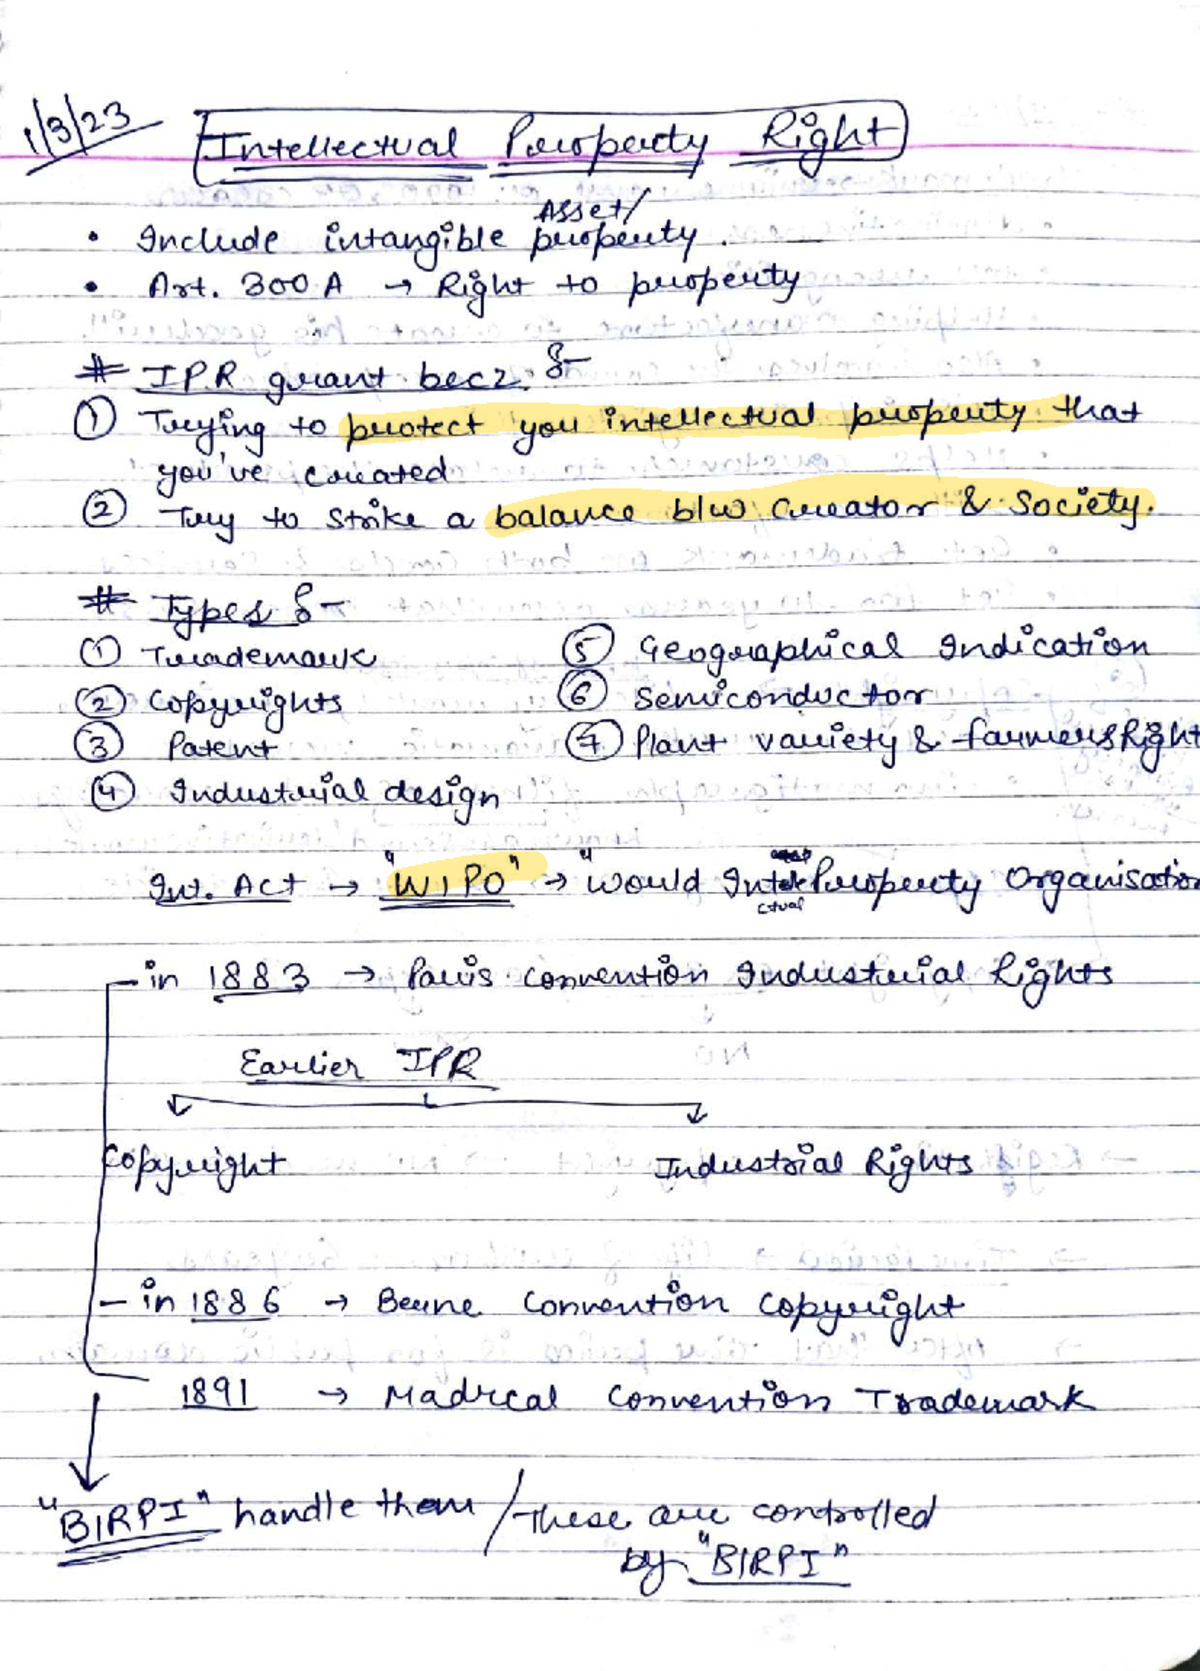 1/3/23
Intellectual Property Right
Asset/
• Include intangible property.
• Art. 300 A → Right to property
# IPR grant becz. :-
① Trying to protect you intellectual property that
you've created
② Try to strike a balance b/w Creator & Society.
# Types :-
① Trademark
② Copyrights
③ Patent
④ Industrial design
⑤ Geographical Indication
⑥ Semiconductor
⑦ Plant variety & farmers Right
Int. Act → "WIPO" → "World Intellectual Property Organisation
- in 1883 → Paris convention Industrial Rights
Earlier IPR
Copyright Industrial Rights
- in 1886 → Berne Convention Copyright
1891 → Madrcal Convention Trademark
"BIRPI" handle them / These are controlled
by "BIRPI"